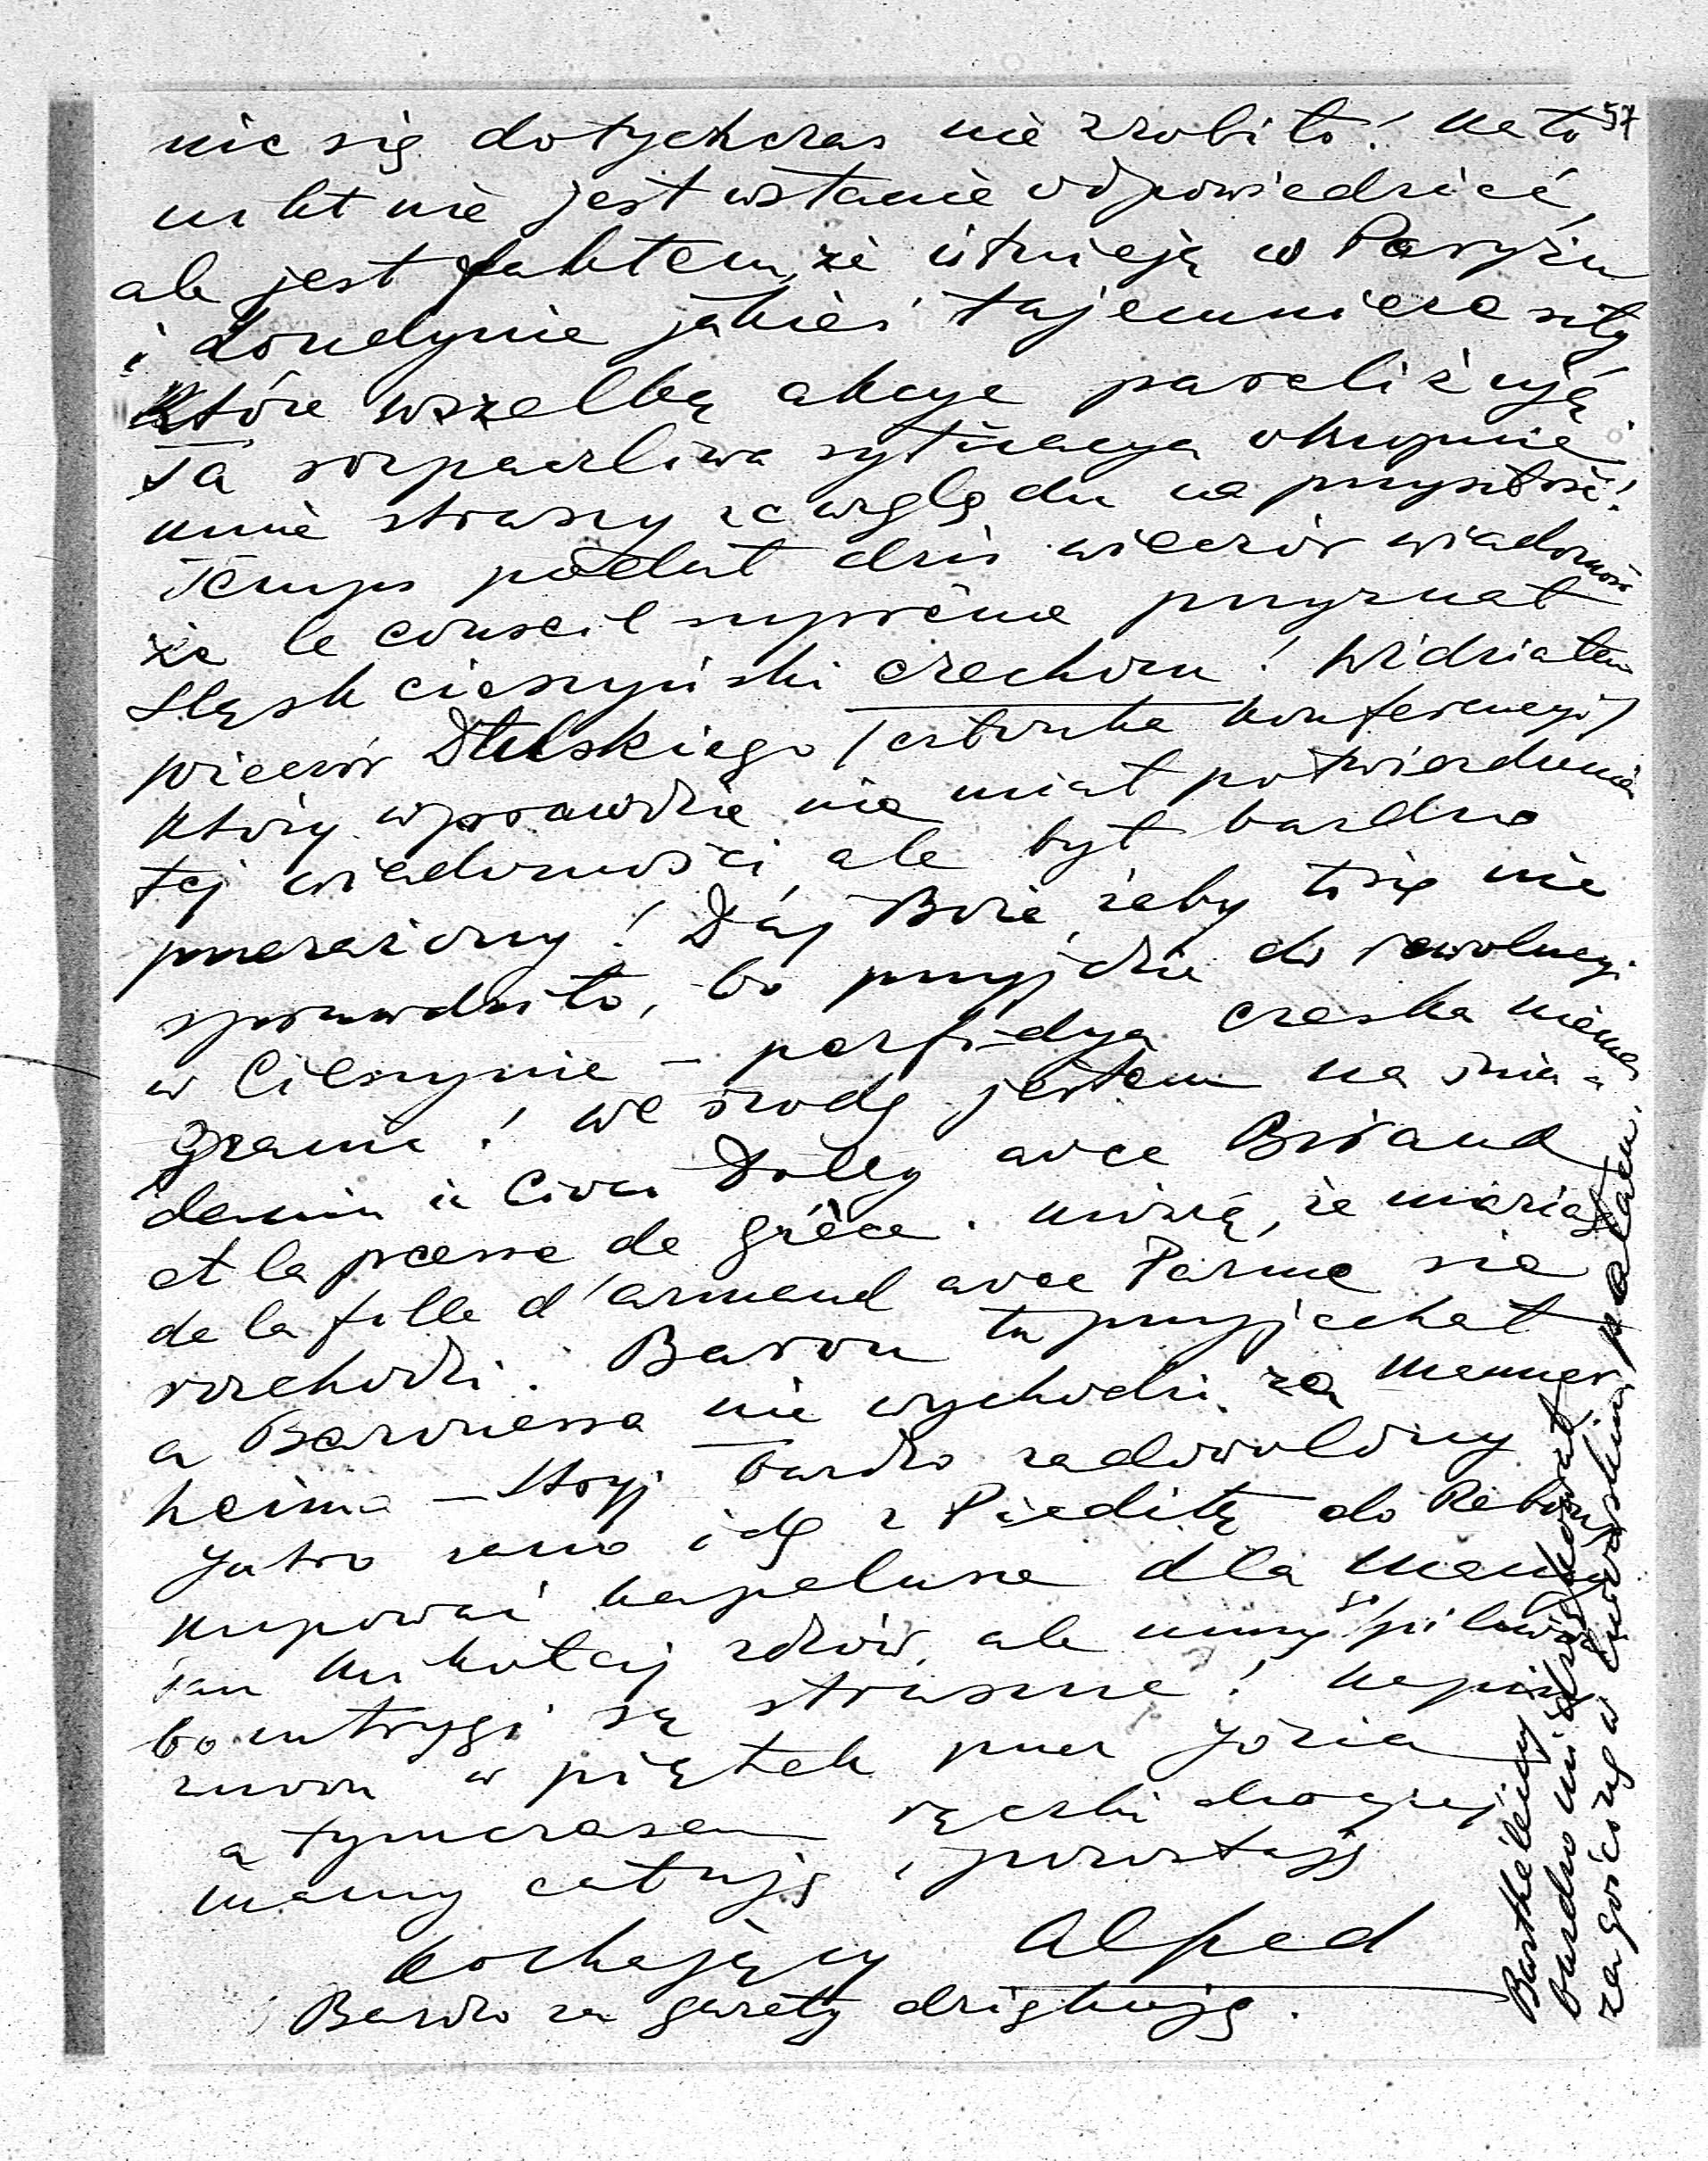 57
nic się dotychczas nie zrobiło! Na to
nikt nie jest wstanie odpowiedzieć,
ale jest faktem, że istnieją w Paryżu
i Londynie jakieś tajemnicze siły
które wszelką akcye paraliżują.
Ta rozpaczliwa sytuacya okropnie
mnie straszy ze względu na przyszłość!
Temps podał dziś wieczór wiadomość
że le conseil suprême przyznał
Śląsk cieszyński Czechom! Widziałem
wieczór Dłuskiego (członka konferencyi)
który wprawdzie nie miał potwierdzenia
tej wiadomości, ale był bardzo
przerażony! Daj Boże, żeby to się nie
sprawdziło, bo przyjdzie do rewolucyi
w Cieszynie – perfidya czeska niema
granic! We środę jestem na śnia-
daniu u Dolly avec Briand
et la pcesse de Grèce. Mówią, że mariage
de la fille d'Armand avec Parme się
rozchodzi. Baron tu przyjechał
a Baronessa nie wychodzi za Manner-
heima – Stryj bardzo zadowolony
Jutro rano idę z Pieditą do Reboux
kupować kapelusze dla Mamy
Jan Mikołaj zdrów, ale musi się pilnować
bo intrygi są straszne! Napiszę
znowu w piątek przez Józia
a tymczasem rączki drogiej
mamy całuję i pozostaję
kochający Alfred
Bardzo za gazety dziękuję.
Barthélemy
bardzo mi dziękował
za gościnę w Chorzelskim pałacu.